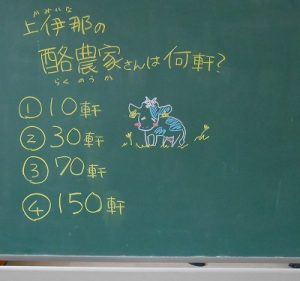 かみいな
上伊那の
酪農家さんは何軒?
らくのうか
① 10軒
② 30軒
③ 70軒
④ 150軒